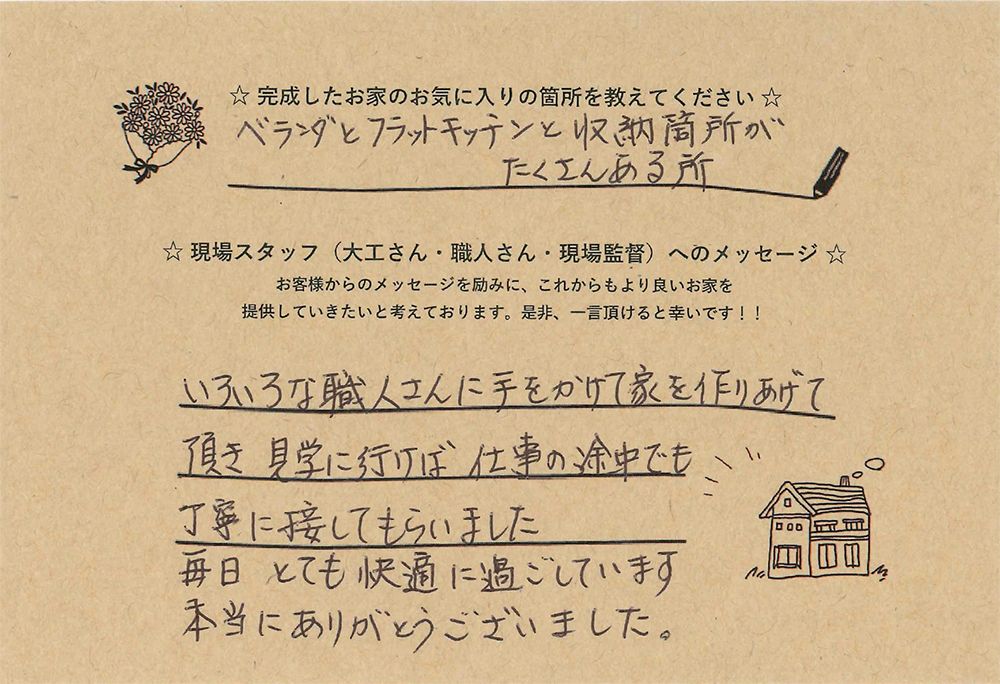 ☆ 完成したお家のお気に入りの箇所を教えてください ☆
ベランダとフラットキッチンと収納箇所が
たくさんある所
☆ 現場スタッフ（大工さん・職人さん・現場監督）へのメッセージ ☆
お客様からのメッセージを励みに、これからもより良いお家を
提供していきたいと考えております。是非、一言頂けると幸いです！！
いろいろな職人さんに手をかけて家を作りあげて
頂き 見学に行けば 仕事の途中でも
丁寧に接してもらいました
毎日 とても快適に過ごしています
本当にありがとうございました。